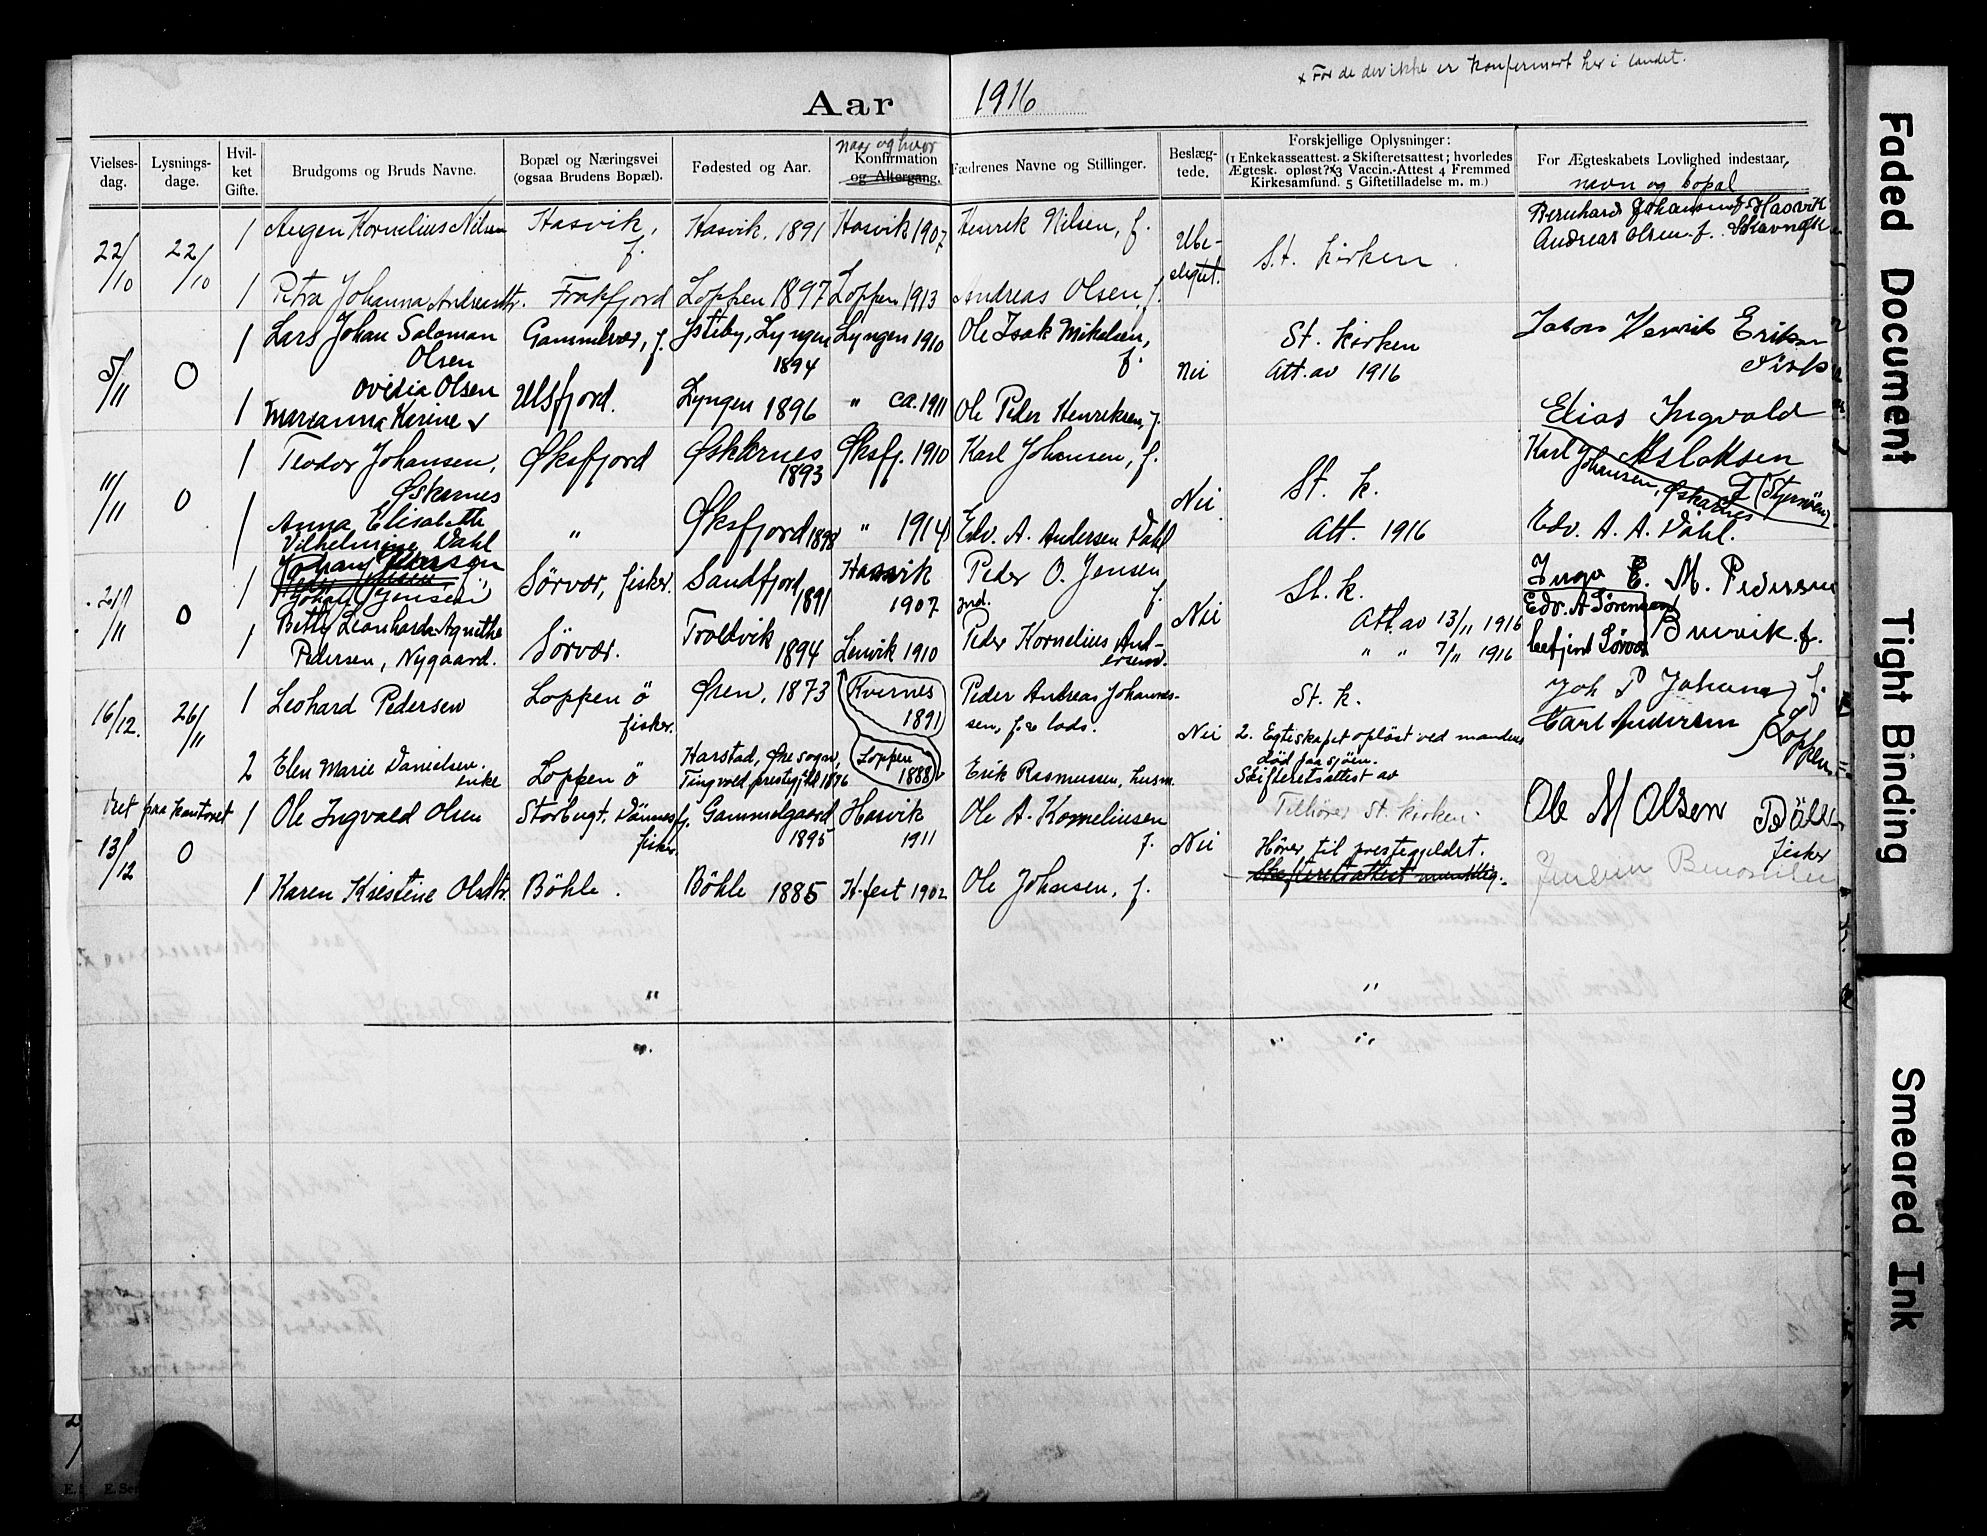 x For de der ikke er konfermert her i landet.
Aar 1916
Vielses-dag.
Lysnings-dage.
Hvil-ket Gifte.
Brudgoms og Bruds Navne.
Bopæl og Næringsvei (ogsaa Brudens Bopæl).
Fødested og Aar.
naar og hvor
Konfirmation
og Altergang.
Fædrenes Navne og Stillinger.
Beslæg-tede.
Forskjellige Oplysninger:
(1 Enkekasseattest. 2 Skifteretsattest; hvorledes
Ægtesk. opløst?x3 Vaccin.-Attest 4 Fremmed
Kirkesamfund. 5 Giftetilladelse m. m.)
For Ægteskabets Lovlighed indestaar,
navn og bopæl
22/10 22/10 1 Angen Kornelius Nilsen Hasvik, f. Hasvik, 1891 Hasvik 1907 Henrik Nilsen, f. Ube-slegtet. St. kirken
Bernhard Johansen f. Hasvik
Andreas Olsen f.
1 Petra Johanna Andreasdtr. Frakfjord Loppen 1897 Loppen 1913 Andreas Olsen, f.
5/11 0 1 Lars Johan Saloman Olsen Gammelvær, f. Lyngen 1894 Lyngen 1910 Ole Isak Mikalsen, f. Nei St. kirken
Att. av 1916
Henrik
1 ovidia Olsen
Marianna Kerine v Ulsfjord. Lyngen 1896 " ca. 1911 Ole Peder Henriksen, f.
Elias Ingvald
Aslaksen
(Stjernöen)
11/11 0 1 Teodor Johansen, Øskernes Øksfjord Øskernes 1893 Øksfj. 1910 Karl Johansen, f. Nei St. k.
Karl Johansen, Øskarnes
1 Anna Elisabeth Vilhelmine Dahl " Øksfjord 1898 " 1914 Edv. A. Andersen Dahl Att. 1916 Edv. A. A. Dahl.
21/11 0 1 Sørvær, fisker. Sandfjord 1891 Hasvik 1907 Peder O. Jensen f. Nei St. k.
Att. av 13/11 1916
" " 7/11 1916
M. Pedersen
Edv. A Sørensen
1 Betty Leonharda Agnethe
Pedersen, Nygaard. Sørvær. Trollvik 1894 Lenvik 1910 Peder Kornelius And-ersen.
16/12. 26/11 1 Leohard Pedersen Loppen ö fisker. Øren, 1873 Kvernes 1891 Peder Andreas Johannes-sen, f. & lods. Nei St. k.
2. Egteskapet opløst ved mandens
død paa sjöen.
Skifteretsattest av
Joh P Johansen
Carl Andersen
Loppen
2 Elen Marie Danielsen. enke Loppen ö Harstad, Øre sogn, Tingvold prestegjeld 1876 Loppen 1888 Erik Rasmussen, husm.
Viet paa kontoret 1 Ole Ingvald Olsen Storbugt. Dönnesfj. fisker. Gammelgaard 1895 Hasvik 1911 Ole A. Korneliusen f. Nei Tilhører St. kirken.
13/12 0
Hører til prestegjeldet.
Skifteretsattest mundtlig.
Ole M Olsen Böle fisker
1 Karen Kristine Olsdtr. Böhle. Böhle 1885 H.fest 1902 Ole Johnsen, f.
Faded Document
Tight Binding
Smeared Ink